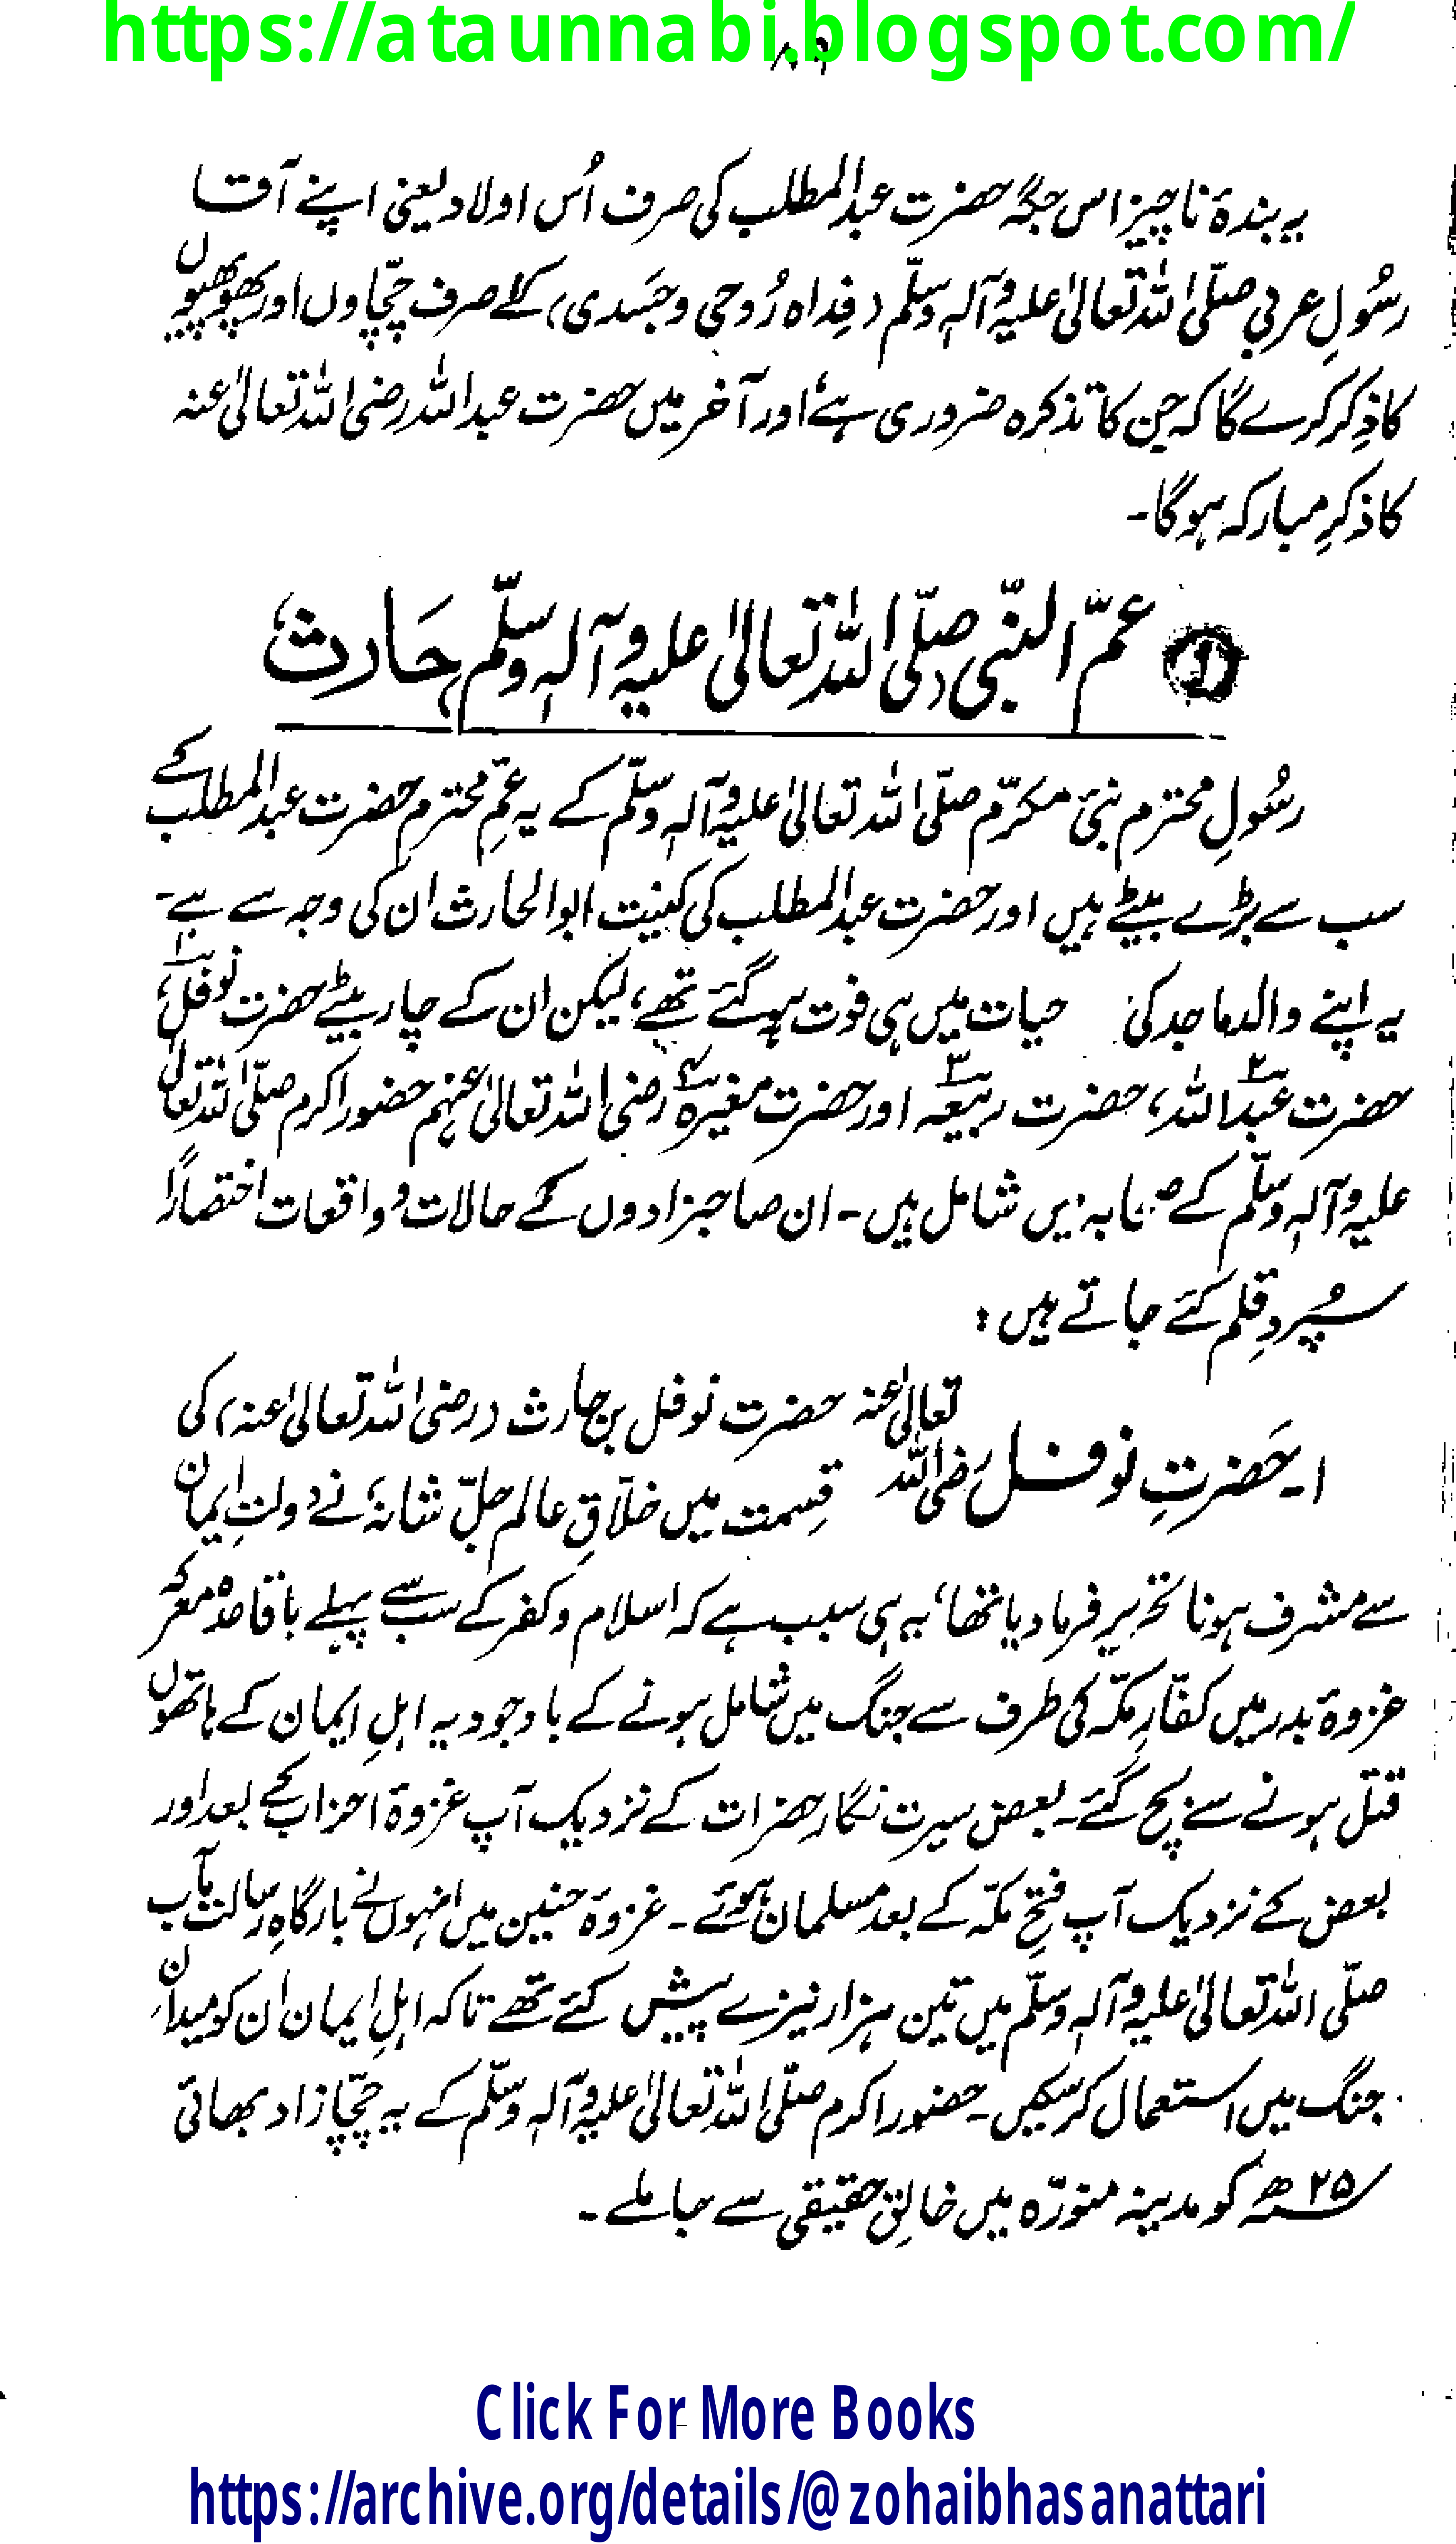 https://ataunnabi.blogspot.com/
یہ بندۂ ناچیز اس جگہ حضرت عبدالمطلب کی صرف اُس اولاد یعنی اپنے آقا
رسُولِ عربی صلّی اللہ تعالیٰ علیہ وآلہٖ وسلّم (فِداہ رُوحی وجَسَدی) کے صرف چچاوں اور پھوپھیوں
کا ذِکر کرے گا کہ جن کا تذکرہ ضروری ہے، اور آخر میں حضرت عبداللہ رضی اللہ تعالیٰ عنہ
کا ذکرِ مبارکہ ہوگا۔
① عمّ النّبی صلّی اللہ تعالیٰ علیہ وآلہٖ وسلّم حَارث
رسُولِ محترم نبیٔ مکرّم صلّی اللہ تعالیٰ علیہ وآلہٖ وسلّم کے یہ عمِّ محترم حضرت عبدالمطلب کے
سب سے بڑے بیٹے ہیں اور حضرت عبدالمطلب کی کنیت ابوالحارث ان کی وجہ سے ہے۔
یہ اپنے والد ماجد کی حیات میں ہی فوت ہوگئے تھے، لیکن ان کے چار بیٹے حضرت نوفل۱،
حضرت عبداللہ۲، حضرت ربیعہ۳ اور حضرت مغیرہ۴ رضی اللہ تعالیٰ عنہم حضور اکرم صلّی اللہ تعالیٰ
علیہ وآلہٖ وسلّم کے صحابہ میں شامل ہیں۔ ان صاحبزادوں کے حالات و واقعات اختصاراً
سپُردِ قلم کئے جاتے ہیں :
۱۔ حَضرتِ نوفل رضی اللہ تعالیٰ عنہ حضرت نوفل بن حارث (رضی اللہ تعالیٰ عنہ) کی
قِسمت میں خلّاقِ عالم جلّ شانہٗ نے دولتِ ایمان
سے مشرف ہونا تحریر فرما دیا تھا، یہ ہی سبب ہے کہ اسلام و کفر کے سب سے پہلے باقاعدہ معرکہ
غزوۂ بدر میں کفّارِ مکّہ کی طرف سے جنگ میں شامل ہونے کے باوجود یہ اہلِ ایمان کے ہاتھوں
قتل ہونے سے بچ گئے۔ بعض سیرت نگار حضرات کے نزدیک آپ غزوۂ احزاب کے بعد اور
بعض کے نزدیک آپ فتحِ مکّہ کے بعد مسلمان ہوئے۔ غزوۂ حنین میں انہوں نے بارگاہِ رسالت مآب
صلّی اللہ تعالیٰ علیہ وآلہٖ وسلّم میں تین ہزار نیزے پیش کئے تھے تاکہ اہلِ ایمان ان کو میدانِ
جنگ میں استعمال کرسکیں۔ حضور اکرم صلّی اللہ تعالیٰ علیہ وآلہٖ وسلّم کے یہ چچازاد بھائی
۲۵ھ کو مدینہ منورّہ میں خالقِ حقیقی سے جاملے۔
Click For More Books
https://archive.org/details/@zohaibhasanattari